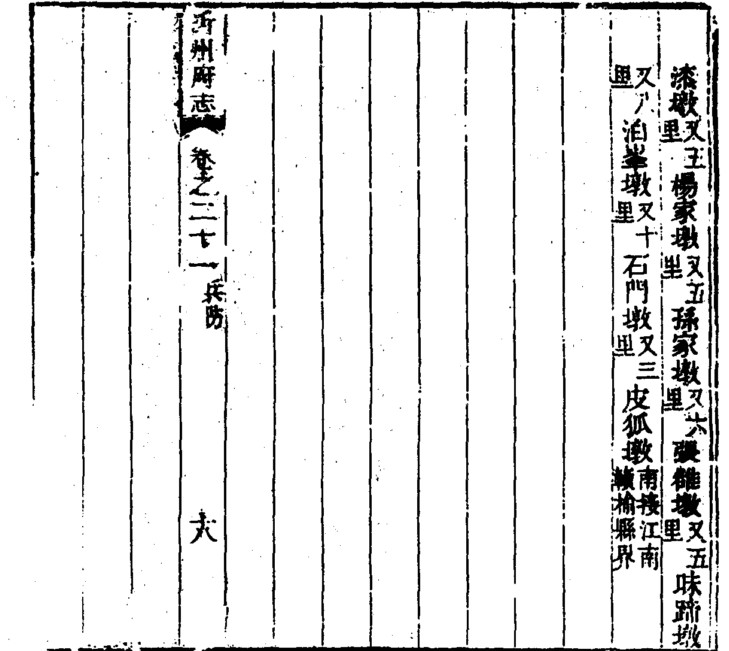 漆墩又五里楊家墩又五里孫家墩又六里張雒墩又五里味蹄墩
又八里泊峯墩又十里石門墩又三里皮狐墩南接江南贛榆縣界
沂州府志 卷之二十一 兵防 六